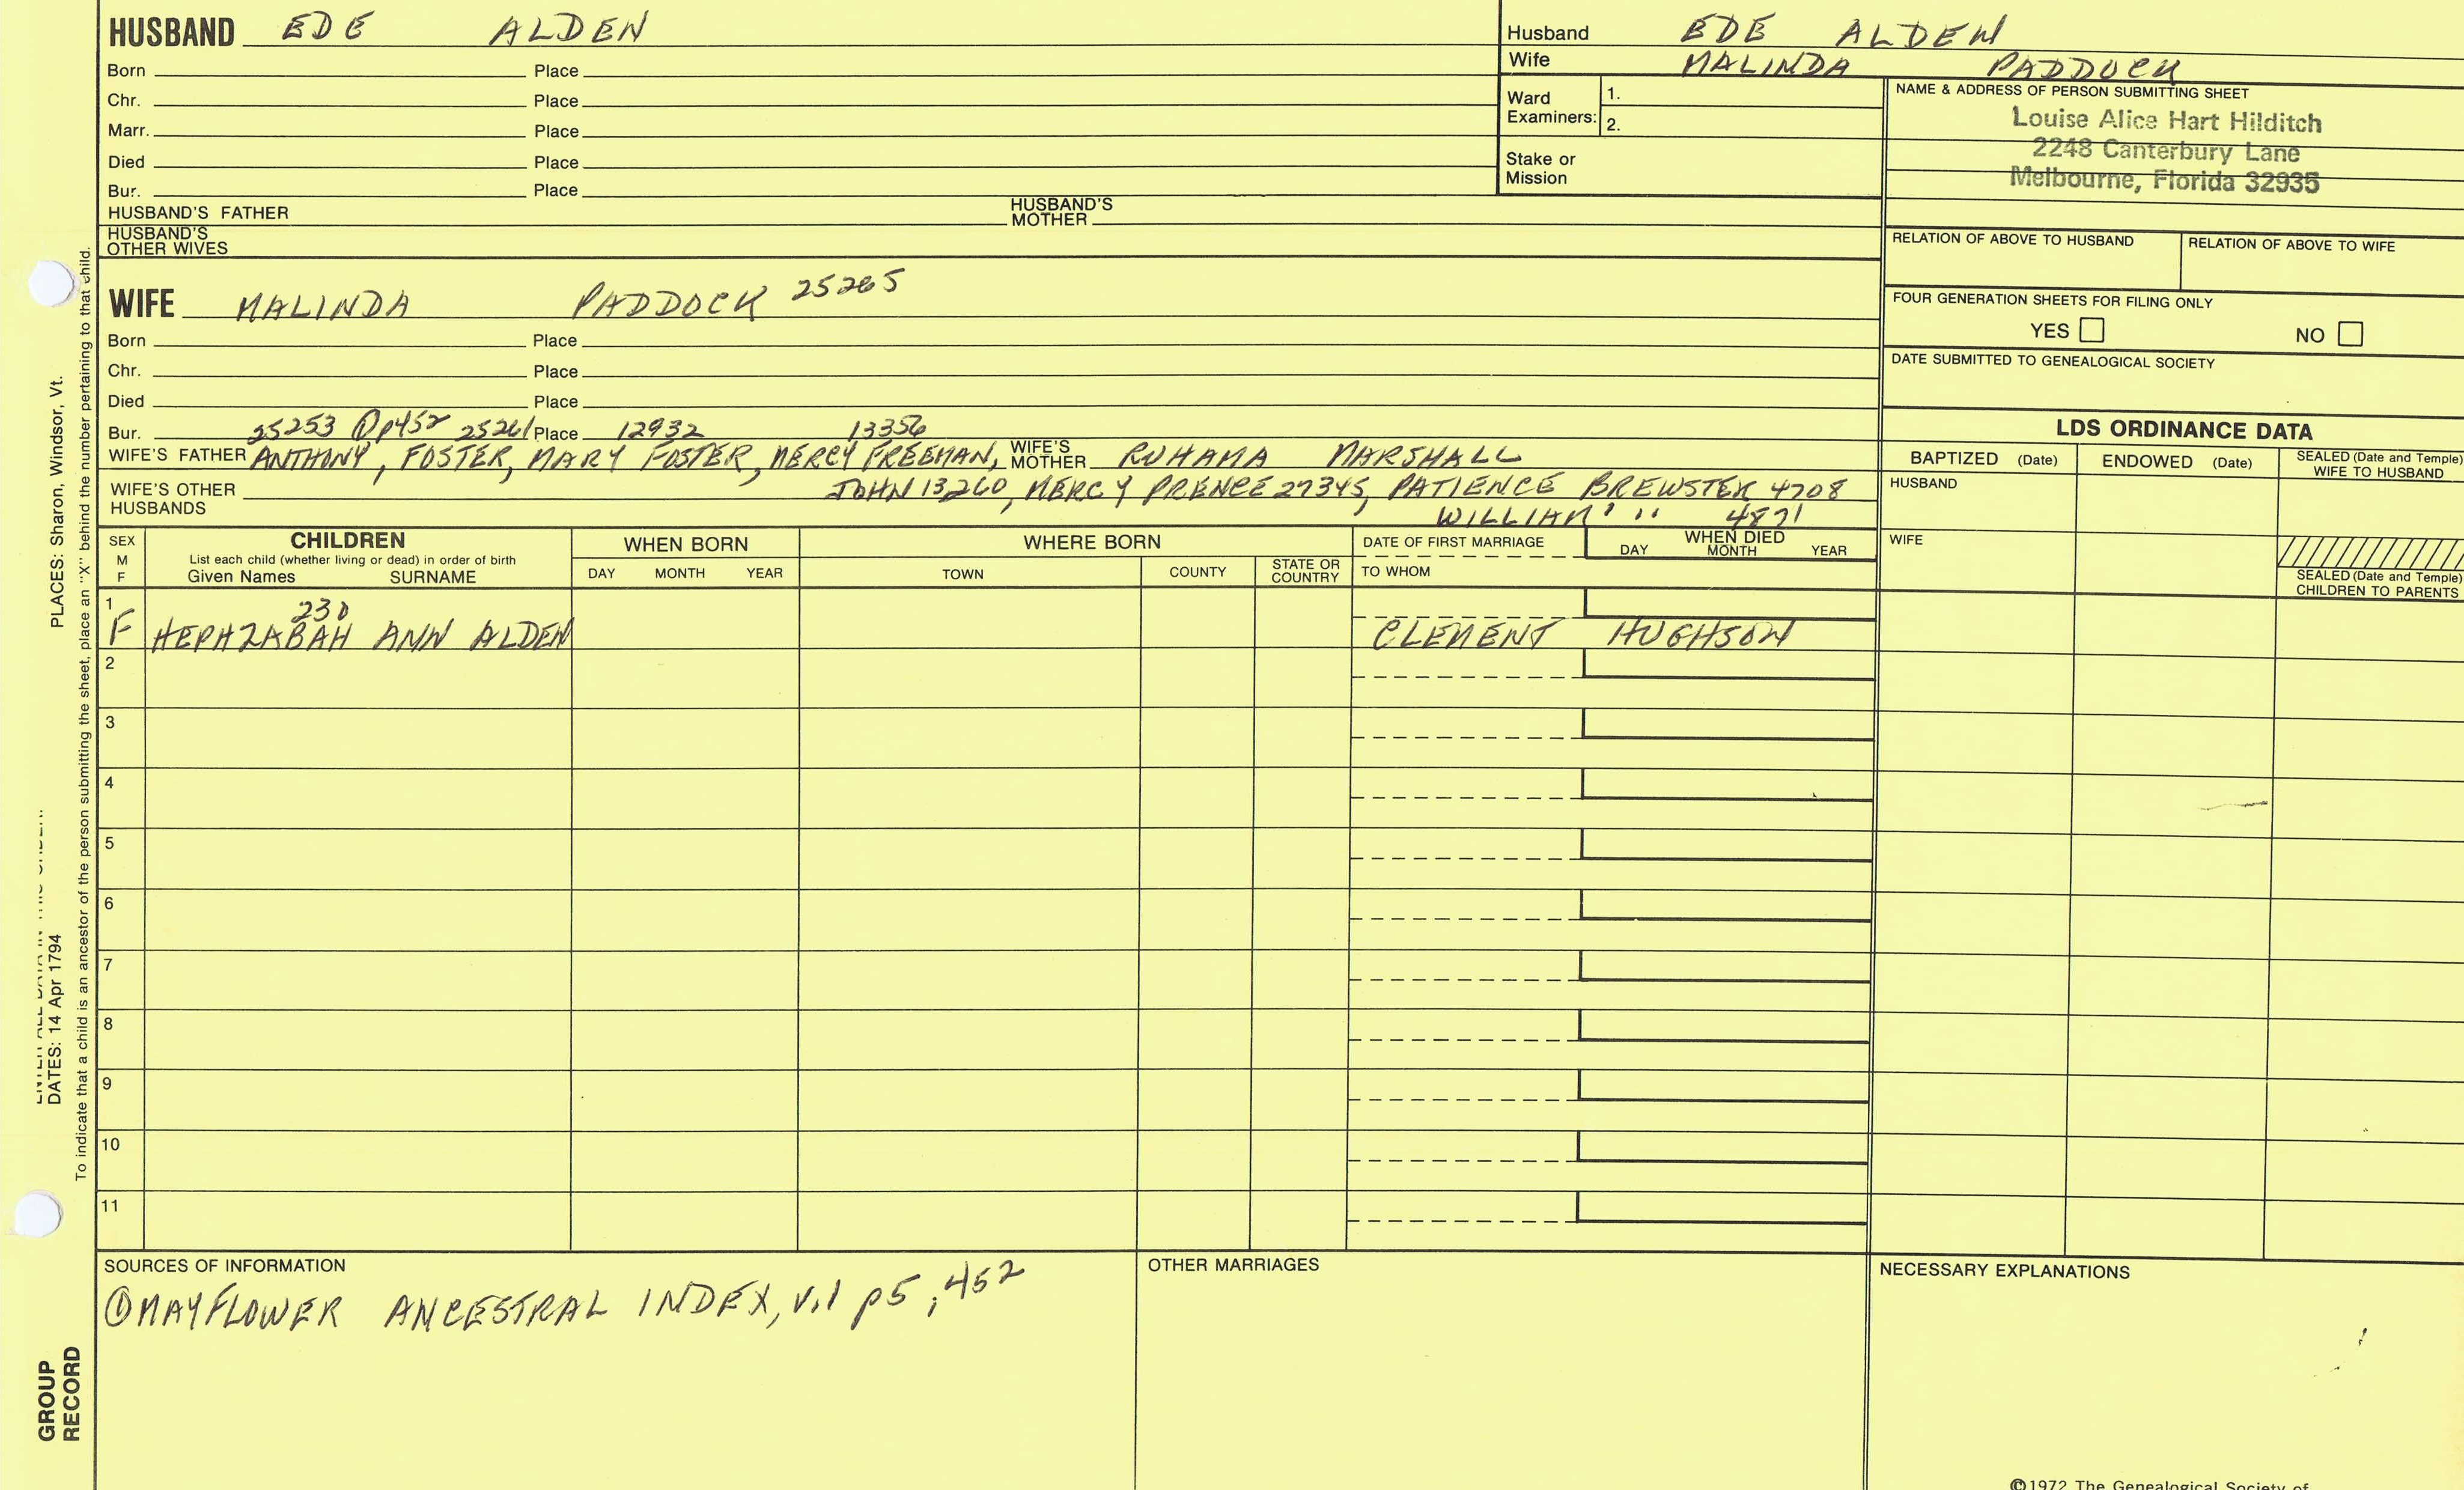 HUSBAND EDE ALDEN
Born Place
Chr. Place
Marr. Place
Died Place
Bur. Place
HUSBAND'S FATHER HUSBAND'S MOTHER
HUSBAND'S OTHER WIVES
Husband EDE ALDEN
Wife MALINDA PADDOCK
Ward Examiners: 1.
2.
Stake or Mission
NAME & ADDRESS OF PERSON SUBMITTING SHEET
Louise Alice Hart Hilditch
2248 Canterbury Lane
Melbourne, Florida 32935
RELATION OF ABOVE TO HUSBAND RELATION OF ABOVE TO WIFE
FOUR GENERATION SHEETS FOR FILING ONLY
YES NO
DATE SUBMITTED TO GENEALOGICAL SOCIETY
WIFE MALINDA PADDOCK 25265
Born Place
Chr. Place
Died Place
Bur. 25253 ① p452 25261 Place 12932 13356
WIFE'S FATHER ANTHONY, FOSTER, MARY FOSTER, MERCY FREEMAN, WIFE'S MOTHER RUHAMA MARSHALL
WIFE'S OTHER HUSBANDS JOHN 13260, MERCY PRENCE 27345, PATIENCE BREWSTER 4708
WILLIAM " 4871
LDS ORDINANCE DATA
BAPTIZED (Date) ENDOWED (Date) SEALED (Date and Temple) WIFE TO HUSBAND
HUSBAND
WIFE
SEALED (Date and Temple) CHILDREN TO PARENTS
SEX M F
CHILDREN
List each child (whether living or dead) in order of birth
Given Names SURNAME
WHEN BORN
DAY MONTH YEAR
WHERE BORN
TOWN COUNTY STATE OR COUNTRY
DATE OF FIRST MARRIAGE
TO WHOM
WHEN DIED
DAY MONTH YEAR
1 230
F HEPHZABAH ANN ALDEN CLEMENT HUGHSON
2
3
4
5
6
7
8
9
10
11
SOURCES OF INFORMATION
① MAYFLOWER ANCESTRAL INDEX, v.1 p5; 452
OTHER MARRIAGES
NECESSARY EXPLANATIONS
©1972 The Genealogical Society of
PLACES: Sharon, Windsor, Vt.
DATES: 14 Apr 1794
To indicate that a child is an ancestor of the person submitting the sheet, place an "X" behind the number pertaining to that child.
GROUP
RECORD